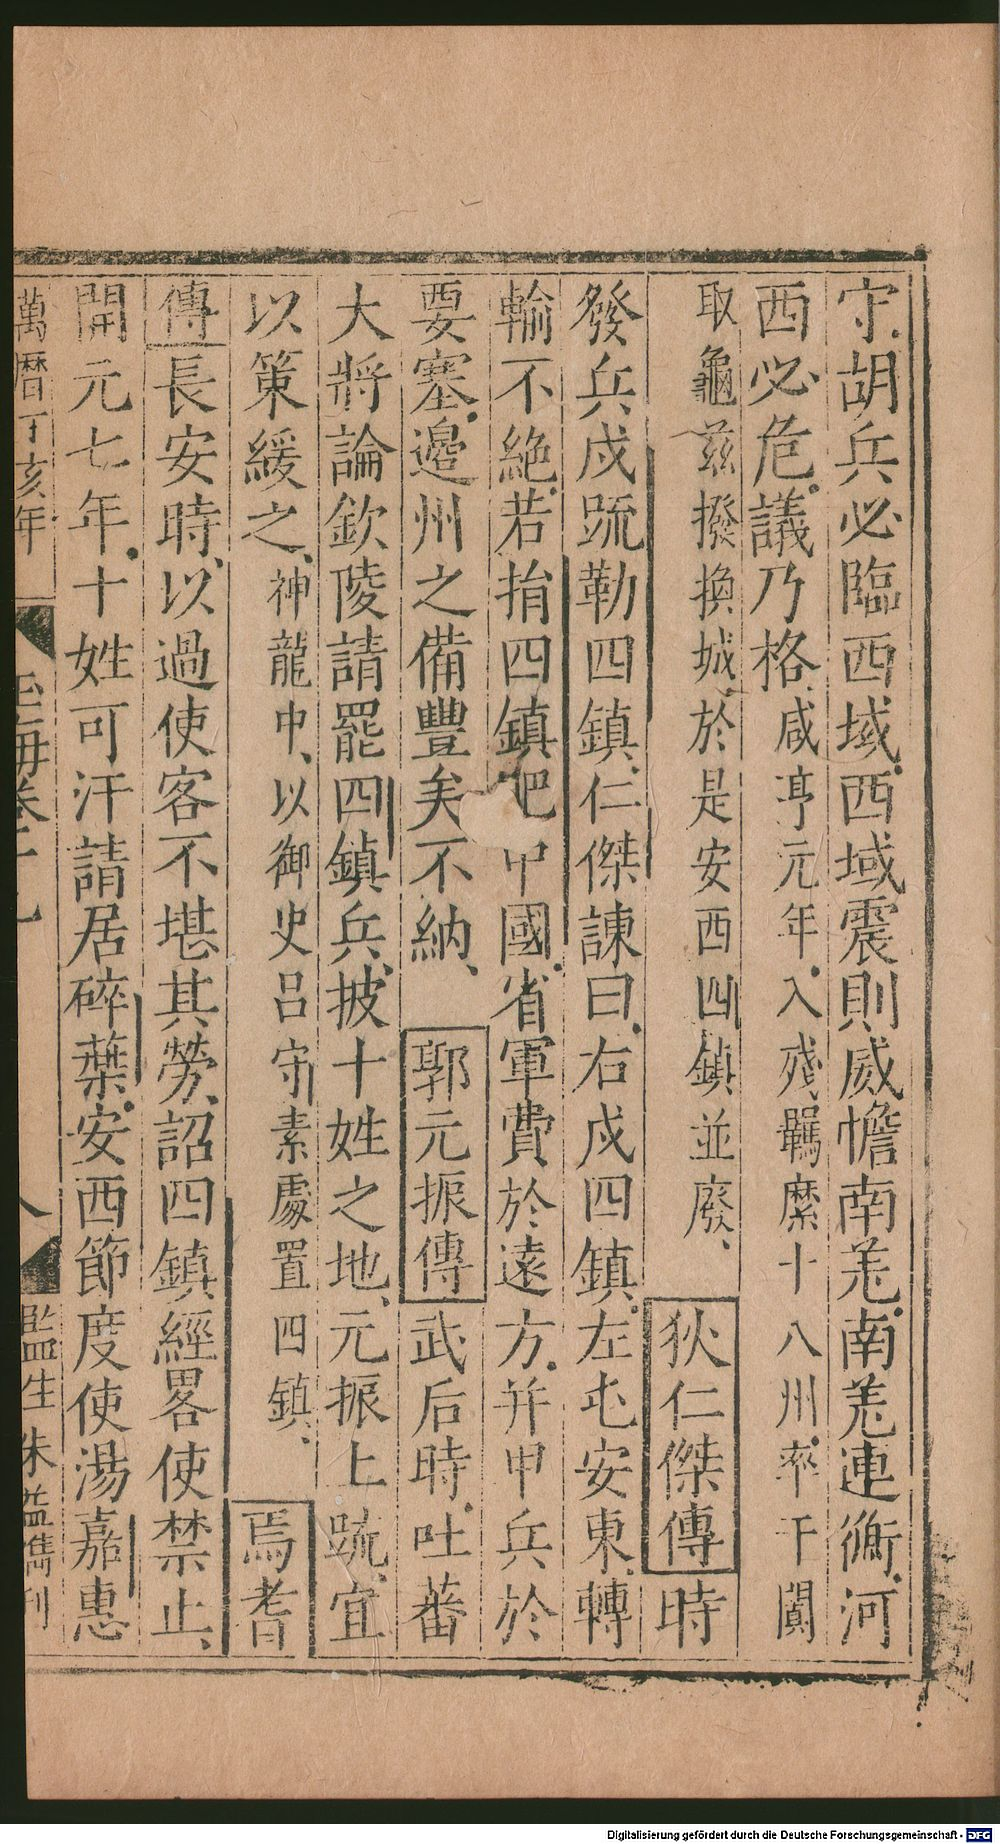 守胡兵必臨西域西域震則威憺南羌南羌連衡河
西必危議乃格咸亨元年入殘羈縻十八州率于闐
取龜兹撥換城於是安西四鎮並廢狄仁傑傳時
發兵戍䟽勒四鎮仁傑諫曰右戍四鎮左屯安東轉
輸不絶若捐四鎮肥中國省軍費於遠方并甲兵於
要塞邉州之備豐矣不納郭元振傳武后時吐蕃
大將論欽陵請罷四鎮兵披十姓之地元振上䟽宜
以策緩之神龍中以御史吕守素處置四鎮焉耆
傳長安時以過使客不堪其勞詔四鎮經畧使禁止
開元七年十姓可汗請居碎葉安西節度使湯嘉惠
萬曆丁亥年 玉海卷 八 監生朱 雋刊
Digitalisierung gefördert durch die Deutsche Forschungsgemeinschaft - DFG